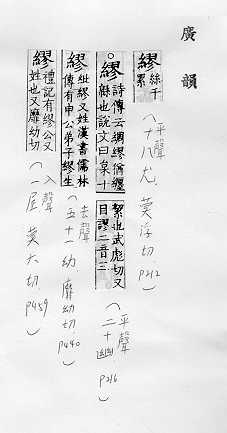 廣韻
繆 絲千累
(平聲 十八尤 莫浮切 P212)
繆 詩傳云綢繆猶纏緜也說文曰枲十絜也武彪切又目謬二音三
(平聲 二十幽 P216)
繆 紕繆又姓漢書儒林傳有申公弟子繆生
(去聲 五十一幼 靡幼切 P440)
繆 禮記有繆公又姓也又靡幼切
(入聲 一屋 莫六切 P459)